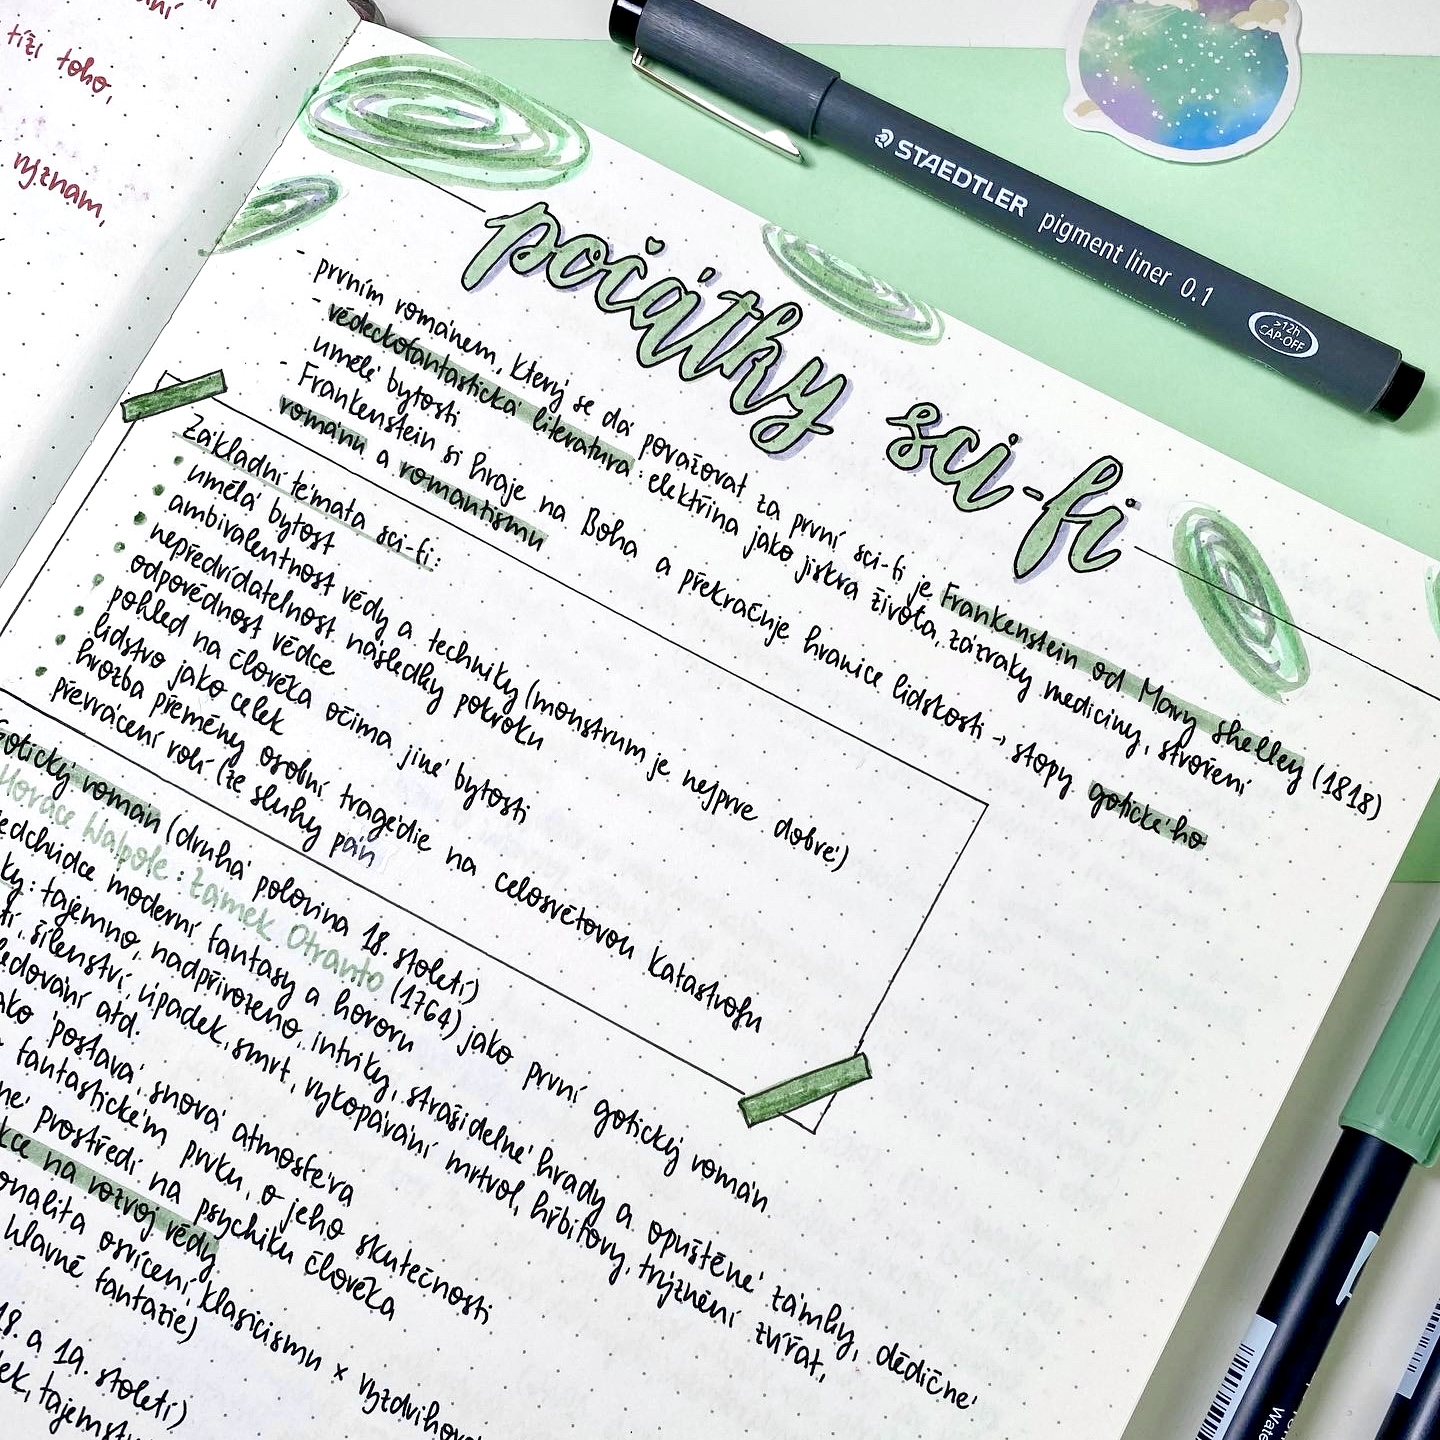 tíži toho,
význam,
STAEDTLER pigment liner 0.1
>12h
CAP-OFF
počátky sci-fi
- prvním románem, který se dá považovat za první sci-fi je Frankenstein od Mary Shelley (1818)
- vědeckofantastická literatura: elektřina jako jiskra života, zázraky medicíny, stvoření
umělé bytosti
- Frankenstein si hraje na Boha a překračuje hranice lidskosti → stopy gotického
románu a romantismu
Základní témata sci-fi:
• umělá bytost
• ambivalentnost vědy a techniky (monstrum je nejprve dobré)
• nepředvídatelnost následky pokroku
• odpovědnost vědce
• pohled na člověka očima jiné bytosti
• lidstvo jako celek
• hrozba přeměny osobní tragédie na celosvětovou katastrofu
• převrácení rolí (ze sluhy pán
Gotický román (druhá polovina 18. století)
Horace Walpole: Zámek Otranto (1764) jako první gotický román
předchůdce moderní fantasy a hororu
ky: tajemno, nadpřirozeno, intriky, strašidelné hrady a opuštěné zámky, dědičné
tí, šílenství, úpadek, smrt, vykopávání mrtvol, hřbitovy, trýznění zvířat,
ledování atd.
ako 'postava', snová atmosféra
fantastickém prvku, o jeho skutečnosti
né prostředí na psychiku člověka
kce na rozvoj vědy
onalita osvícení, klasicismu x vyzdvihová
hlavně fantazie)
18. a 19. století)
ek, tajemstv